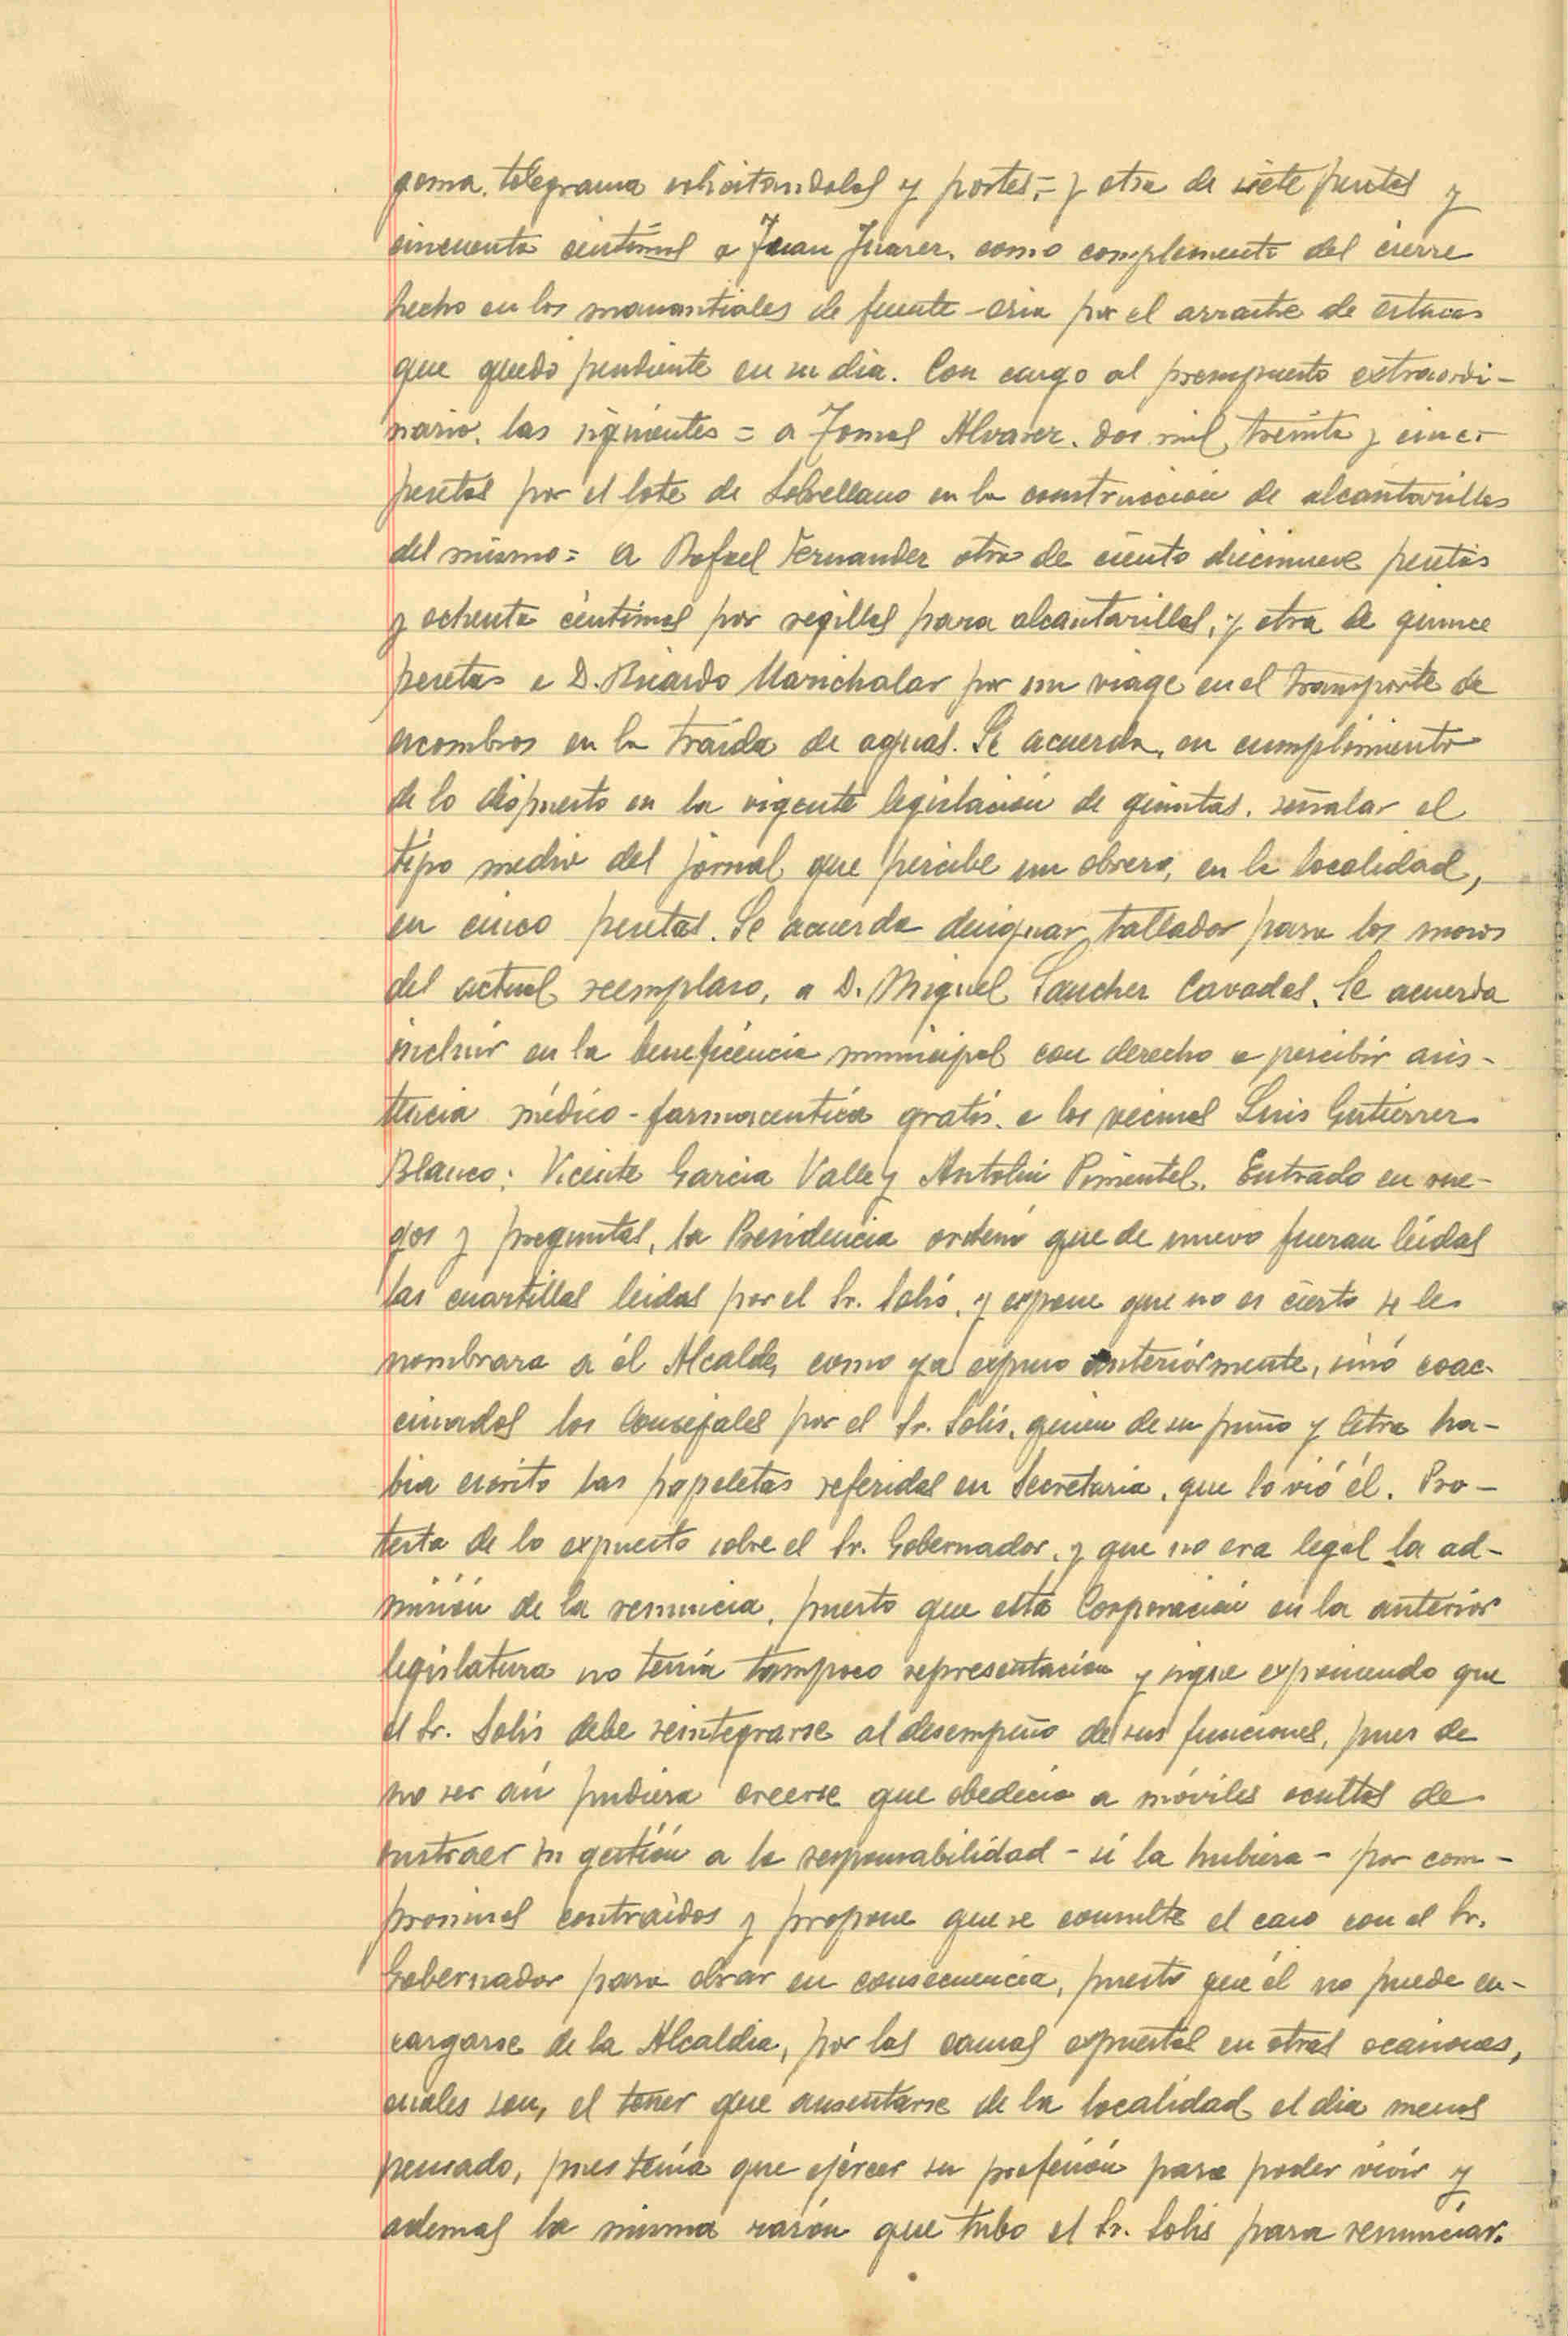 goma, telegrama solicitandolas y portes,= y otra de siete pesetas y
cincuenta centimos a Juan Juarez, como complemento del cierre
hecho en los manantiales de fuente-fria por el arrastre de estacas
que quedó pendiente en su dia. Con cargo al presupuesto extraordi-
nario, las siguientes = a Tomas Alvarez, dos mil treinta y cinco
pesetas por el lote de Sobrellano en la construcción de alcantarillas
del mismo = a Rafael Fernandez otra de ciento diecinueve pesetas
y ochenta céntimos por regillas para alcantarillas, y otra de quince
pesetas a D. Ricardo Marichalar por un viage en el transporte de
escombros en la traída de aguas. Se acuerda, en cumplimiento
de lo dispuesto en la vigente legislación de quintas, señalar el
tipo medio del jornal que percibe un obrero, en la localidad,
en cinco pesetas. Se acuerda designar tallador para los mozos
del actual reemplazo, a D. Miguel Sanchez Cavadas. Se acuerda
incluir en la beneficencia municipal con derecho a percibir asis-
tencia médico-farmaceutica gratis, a los vecinos Luis Gutierrez
Blanco; Vicente Garcia Valle y Antolin Pimentel. Entrado en rue-
gos y preguntas, la Presidencia ordenó que de nuevo fueran leidas
las cuartillas leidas por el Sr. Solís, y expone que no es cierto se le
nombrara a él Alcalde, como ya expuso anteriormente, sinó coac-
cinados los Concejales por el Sr. Solís, quien de su puño y letra ha-
bia escrito las papeletas referidas en Secretaria, que lo vió él. Pro-
testa de lo expuesto sobre el Sr. Gobernador, y que no era legal la ad-
misión de la renuncia, puesto que esta Corporación en la anterior
legislatura no tenia tampoco representación y sigue exponiendo que
el Sr. Solís debe reintegrarse al desempeño de sus funciones, pues de
no ser así pudiera creerse que obedecia a móviles ocultos de
sustraer su gestión a la responsabilidad - si la hubiera - por com-
promisos contraidos y propone que se consulte el caso con el Sr.
Gobernador para obrar en consecuencia, puesto que él no puede en-
cargarse de la Alcaldia, por las causas expuestas en otras ocasiones,
cuales son, el tener que ausentarse de la localidad el dia menos
pensado, pues tenia que ejercer su profesión para poder vivir y
ademas la misma razón que tubo el Sr. Solis para renunciar.